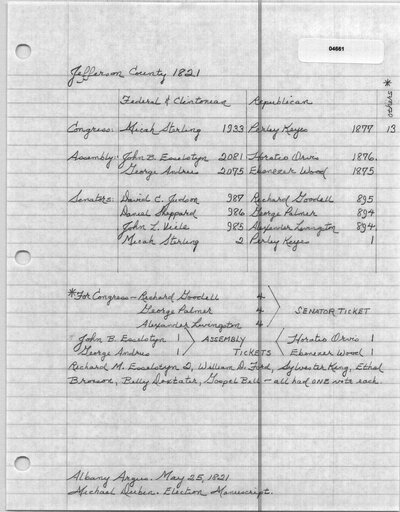 04661
Jefferson County 1821
Federal & Clintonian Republican others *
Congress: Micah Sterling 1933 Perley Keyes 1877 13
Assembly: John B. Esselstyn 2081 Horatio Orvis 1876.
George Andrus 2075 Ebenezer Wood 1875
Senators: David C. Judson 987 Richard Goodell 895
Daniel Sheppard 986 George Palmer 894
John L. Viele 985 Alexander Livingston 894
Micah Sterling 2 Perley Keyes 1
*For Congress - Richard Goodell 4
George Palmer 4 SENATOR TICKET
Alexander Livingston 4
John B. Esselstyn 1 ASSEMBLY Horatio Orvis 1
George Andrus 1 TICKETS Ebenezer Wood 1
Richard M. Esselstyn 2, William D. Ford, Sylvester King, Ethel
Bronson, Billy Doxtater, Gospel Bell - all had ONE vote each.
Albany Argus. May 25, 1821
Michael Dubin. Election Manuscript.